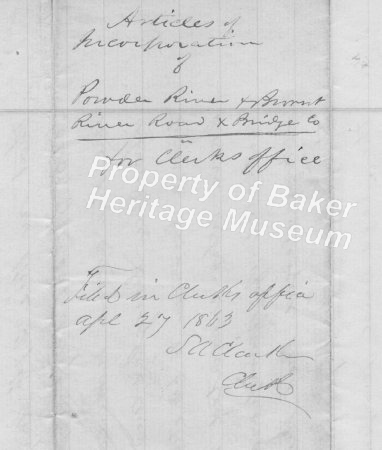 Articles of
Incorporation
of
Powder River & Burnt
River Road & Bridge Co
for Clerks office
Property of Baker
Heritage Museum
Filed in Clerks office
Apl 27 1863
S A Clarke
Clerk